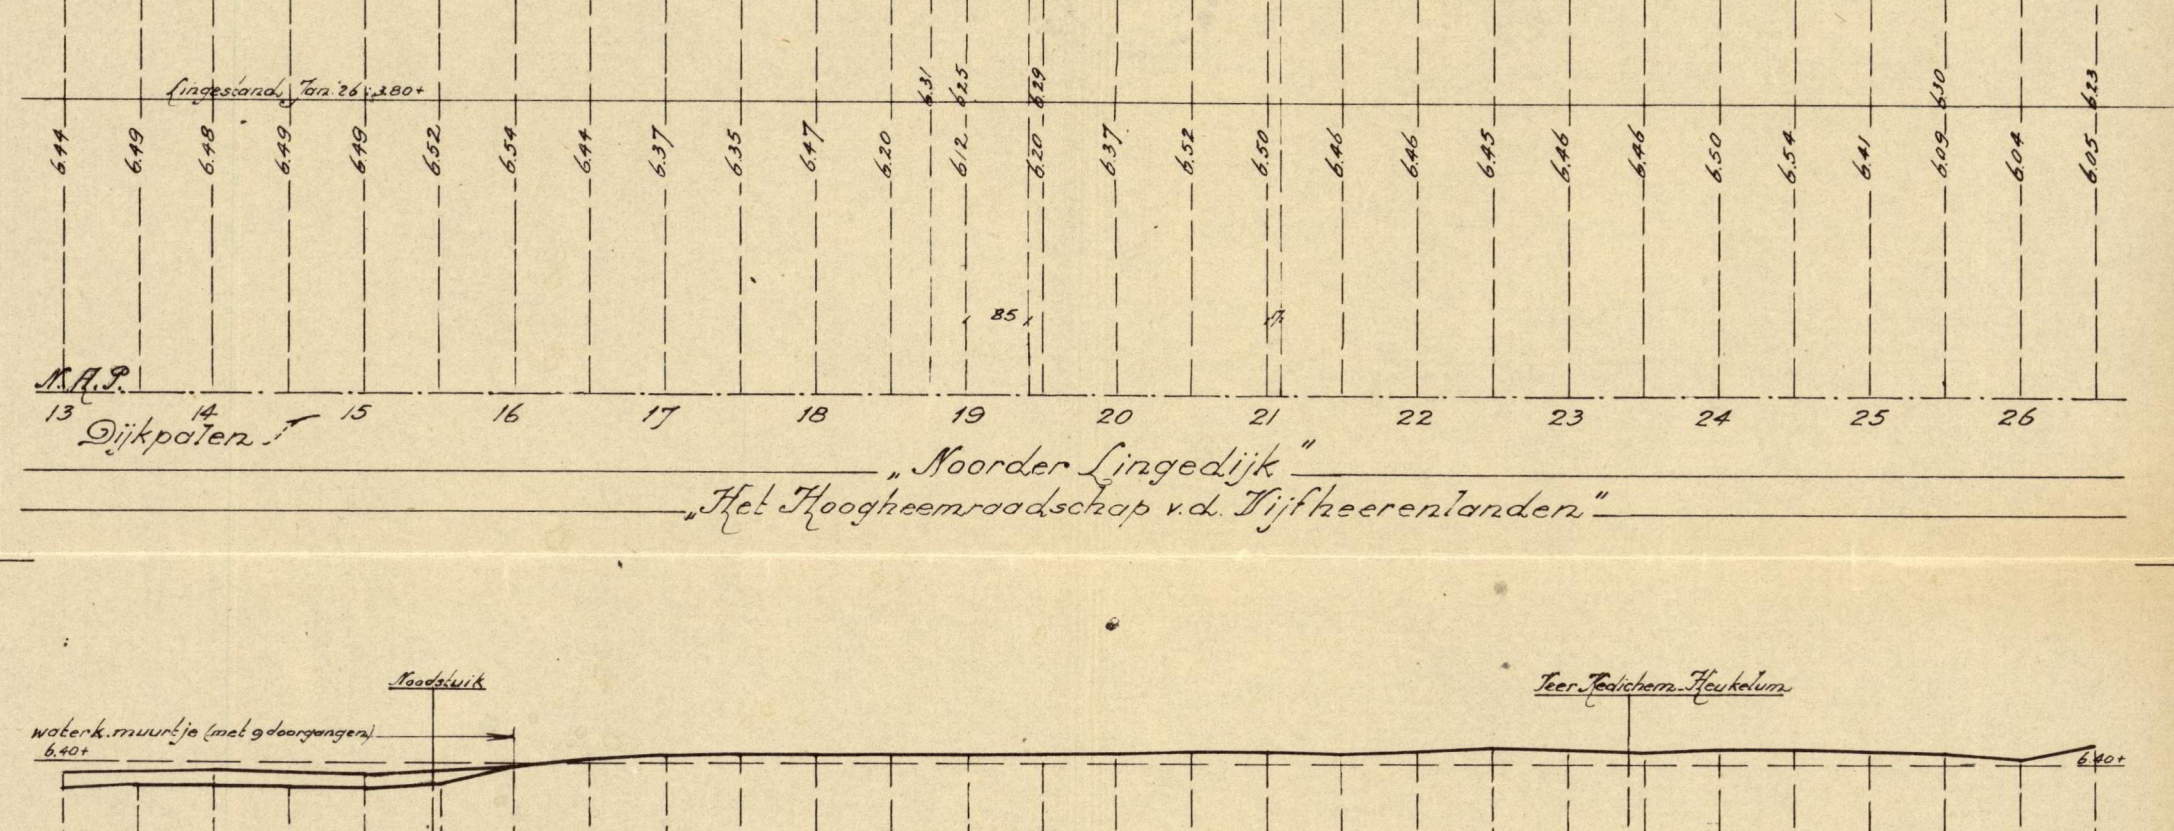 Lingestand Jan. '26 : 3.80+
6.31 6.25 6.29 6.30 6.23
6.44 6.49 6.48 6.49 6.49 6.52 6.54 6.44 6.37 6.35 6.47 6.20 6.12 6.20 6.37 6.52 6.50 6.46 6.46 6.45 6.46 6.46 6.50 6.54 6.41 6.09 6.04 6.05
85
N.A.P.
13 14 15 16 17 18 19 20 21 22 23 24 25 26
Dijkpalen
„Noorder Lingedijk"
„Het Hoogheemraadschap v.d. Vijfheerenlanden"
Noodstuik
Veer Kedichem-Heukelum
waterk. muurtje (met 9 doorgangen)
6.40+
6.40+